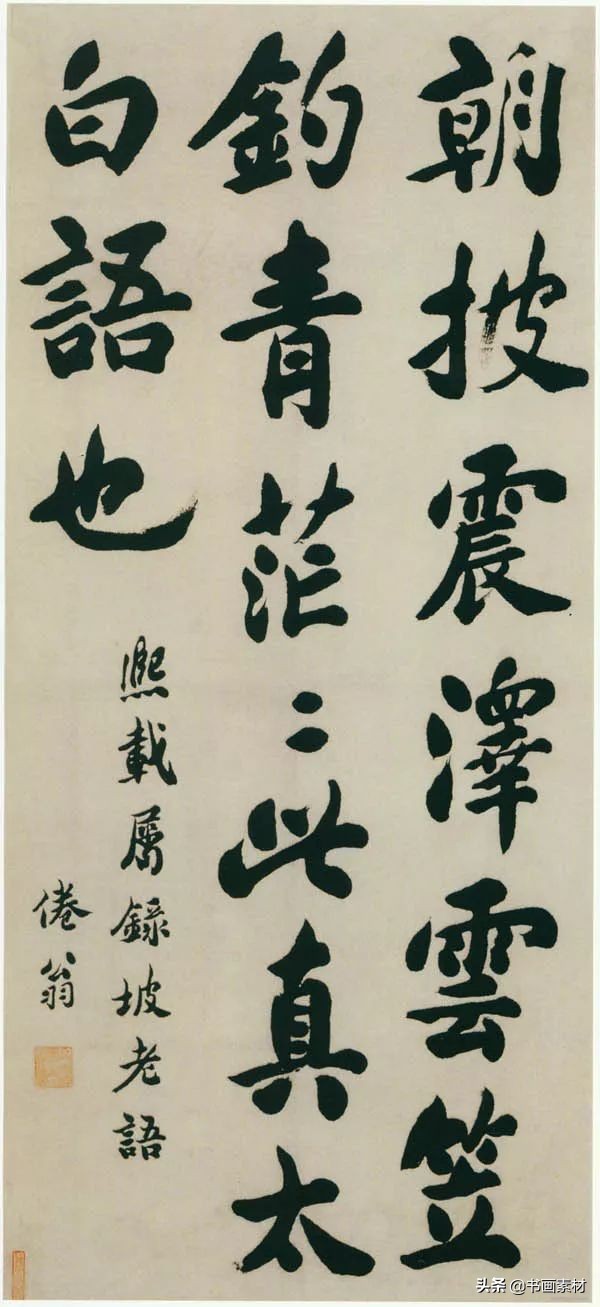 朝披震澤雲笠
釣青茫〻此真太
白語也
熙載屬錄坡老語
倦翁
头条 @书画素材